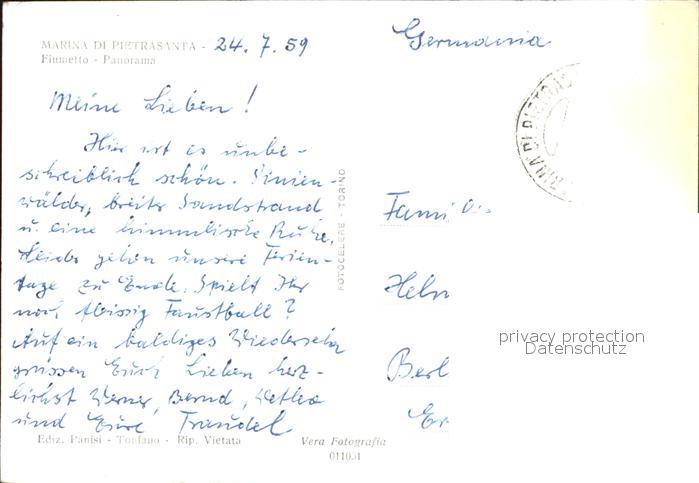 MARINA DI PIETRASANTA - 24. 7. 59
Fiumetto - Panorama
Germania
Meine Lieben!
Hier ist es unbe-
schreiblich schön. Pinien-
wälder, breiter Sandstrand
u. eine himmlische Ruhe.
Leider gehen unsere Ferien-
tage zu Ende. Spielt Ihr
noch fleissig Faustball?
Auf ein baldiges Wiedersehn
grüssen Euch Lieben herz-
lichst Werner, Bernd,
und Eure Traudel
FOTOCELERE - TORINO
Fami
Heln
Berl
Er
MARINA DI PIETRAS
privacy protection
Datenschutz
Ediz. Panisi - Tonfano - Rip. Vietata
Vera Fotografia
011031